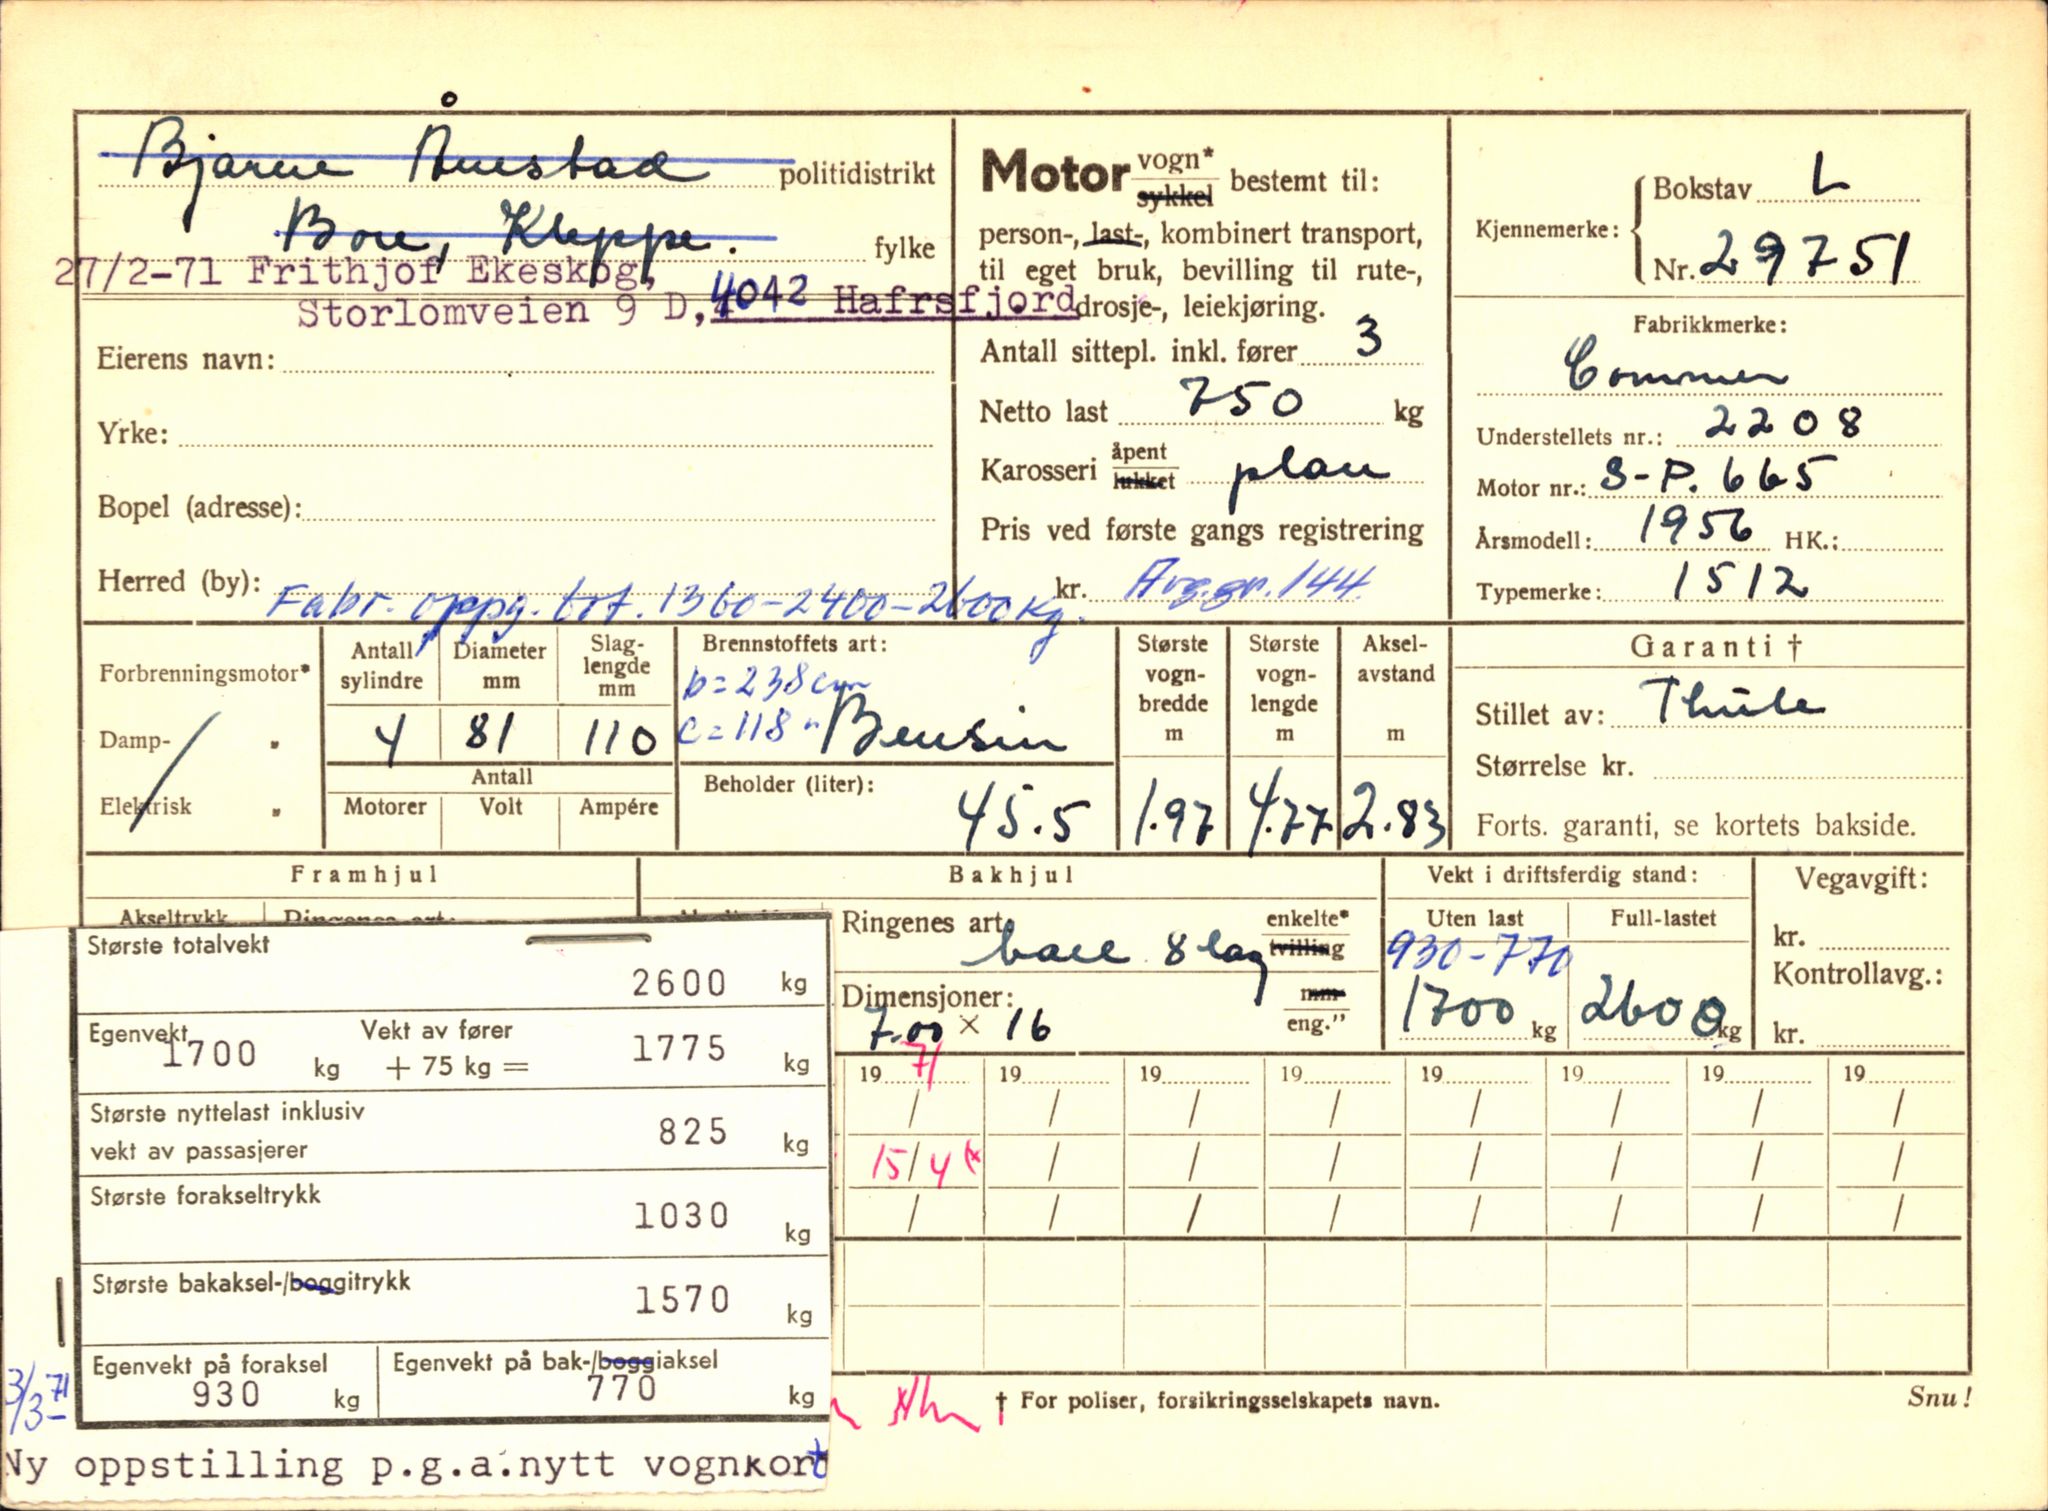 Bjarne Ånestad politidistrikt
Bore, Kleppe. fylke
27/2-71 Frithjof Ekeskog,
Storlomveien 9 D, 4042 Hafrsfjord
Eierens navn:
Yrke:
Bopel (adresse):
Herred (by):
Fabr. oppg. tot. 1360-2400-2600 kg.
Motor vogn* sykkel bestemt til:
person-, last-, kombinert transport,
til eget bruk, bevilling til rute-,
drosje-, leiekjøring.
Antall sittepl. inkl. fører 3
Netto last 750 kg
Karosseri åpent lukket plan
Pris ved første gangs registrering
kr. Avg.gr. 144
Kjennemerke: Bokstav L
Nr. 29751
Fabrikkmerke:
Commer
Understellets nr.: 2208
Motor nr.: S-P. 665
Årsmodell: 1956 HK.:
Typemerke: 1512
Forbrenningsmotor*
Damp- "
Elektrisk "
Antall sylindre Diameter mm Slag-lengde mm
4 81 110
Antall
Motorer Volt Ampére
Brennstoffets art:
b = 238 cm
c = 118 " Bensin
Beholder (liter):
45.5
Største vogn-bredde m
1.97
Største vogn-lengde m
4.77
Aksel-avstand m
2.83
Garanti †
Stillet av: Thule
Størrelse kr.
Forts. garanti, se kortets bakside.
Framhjul Bakhjul
Akseltrykk Ringenes art:
Ringenes art ball 8 lag enkelte* tvilling
Dimensjoner: 7.00 × 16 mm eng."
Vekt i driftsferdig stand:
Uten last Full-lastet
930-770
1700 kg 2600 kg
Vegavgift:
kr.
Kontrollavg.:
kr.
19 71 19 19 19 19 19 19 19
/ / / / / / / /
15/4 / / / / / / /
/ / / / / / / /
Største totalvekt
2600 kg
Egenvekt 1700 kg Vekt av fører + 75 kg = 1775 kg
Største nyttelast inklusiv
vekt av passasjerer 825 kg
Største forakseltrykk
1030 kg
Største bakaksel-/boggitrykk
1570 kg
Egenvekt på foraksel 930 kg
Egenvekt på bak-/boggiaksel 770 kg
3/3-71
Ny oppstilling p.g.a. nytt vognkort
† For poliser, forsikringsselskapets navn.
Snu!